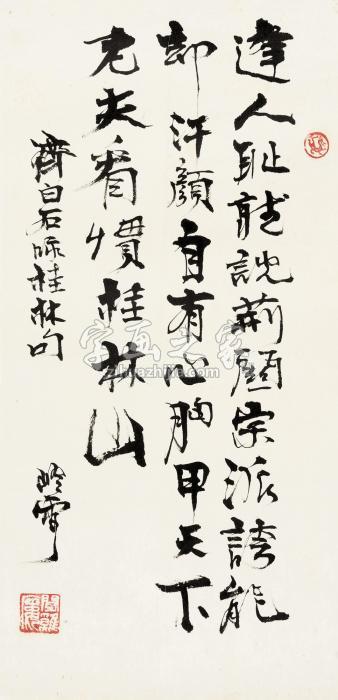 逢人耻聽說荊關宗派誇能
却汗顏自有心胸甲天下
老夫看慣桂林山
齊白石詠桂林句
字画之家